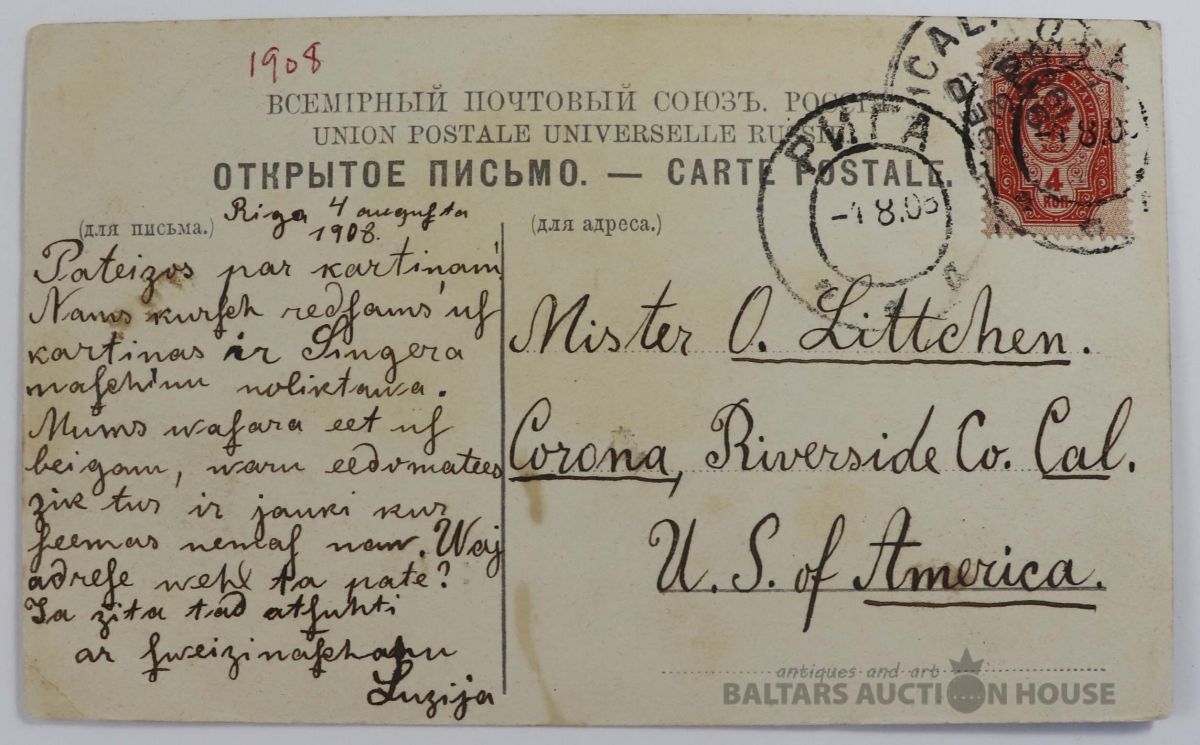 1908
ВСЕМІРНЫЙ ПОЧТОВЫЙ СОЮЗЪ. РОССІ
UNION POSTALE UNIVERSELLE RUSSI
ОТКРЫТОЕ ПИСЬМО. — CARTE POSTALE.
Riga 4 augusta
1908.
(для письма.)
Pateizos par kartiņam
Nams kursch redsams us
kartinas ir Singera
maschinu noliktawa.
Mums wasara eet us
beigam, waru eedomatees
zik tur ir jauki kur
seemas nemas naw. Waj
adrese wehl ta pate?
Ja zita tad atsuhti
ar sweizinaschanu
Luzija
(для адреса.)
РИГА
-4 8.08
4
КОП
CAL.
Mister O. Littchen.
Corona, Riverside Co. Cal.
U. S. of America.
antiques and art
BALTARS AUCTION HOUSE